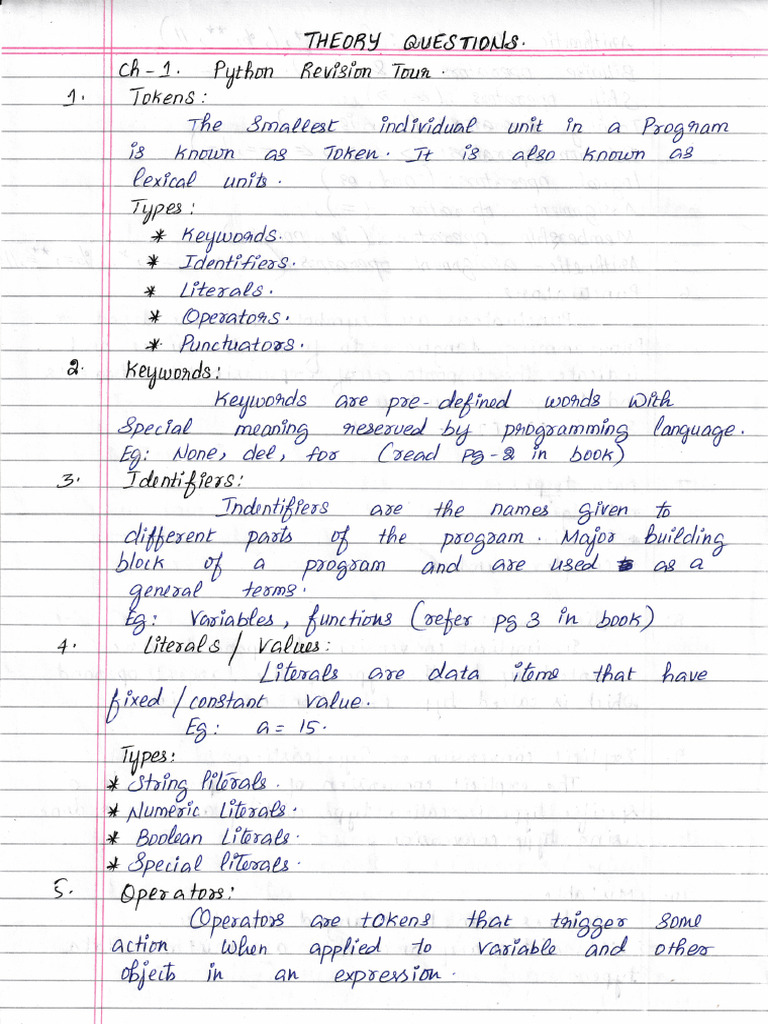 THEORY QUESTIONS.
Ch-1. Python Revision Tour.
1. Tokens:
The Smallest individual unit in a Program
is known as Token. It is also known as
lexical units.
Types:
* Keywords.
* Identifiers.
* Literals.
* Operators.
* Punctuators.
2. Keywords:
Keywords are pre-defined words with
Special meaning reserved by programming language.
Eg: None, del, for (read pg-2 in book)
3. Identifiers:
Indentifiers are the names given to
different parts of the program. Major building
block of a program and are used as a
general terms.
Eg: Variables, functions (refer pg 3 in book)
4. Literals / Values:
Literals are data items that have
fixed / constant value.
Eg: a = 15.
Types:
* String literals.
* Numeric Literals.
* Boolean Literals.
* Special literals.
5. Operators:
Operators are tokens that trigger some
action when applied to variable and other
objects in an expression.